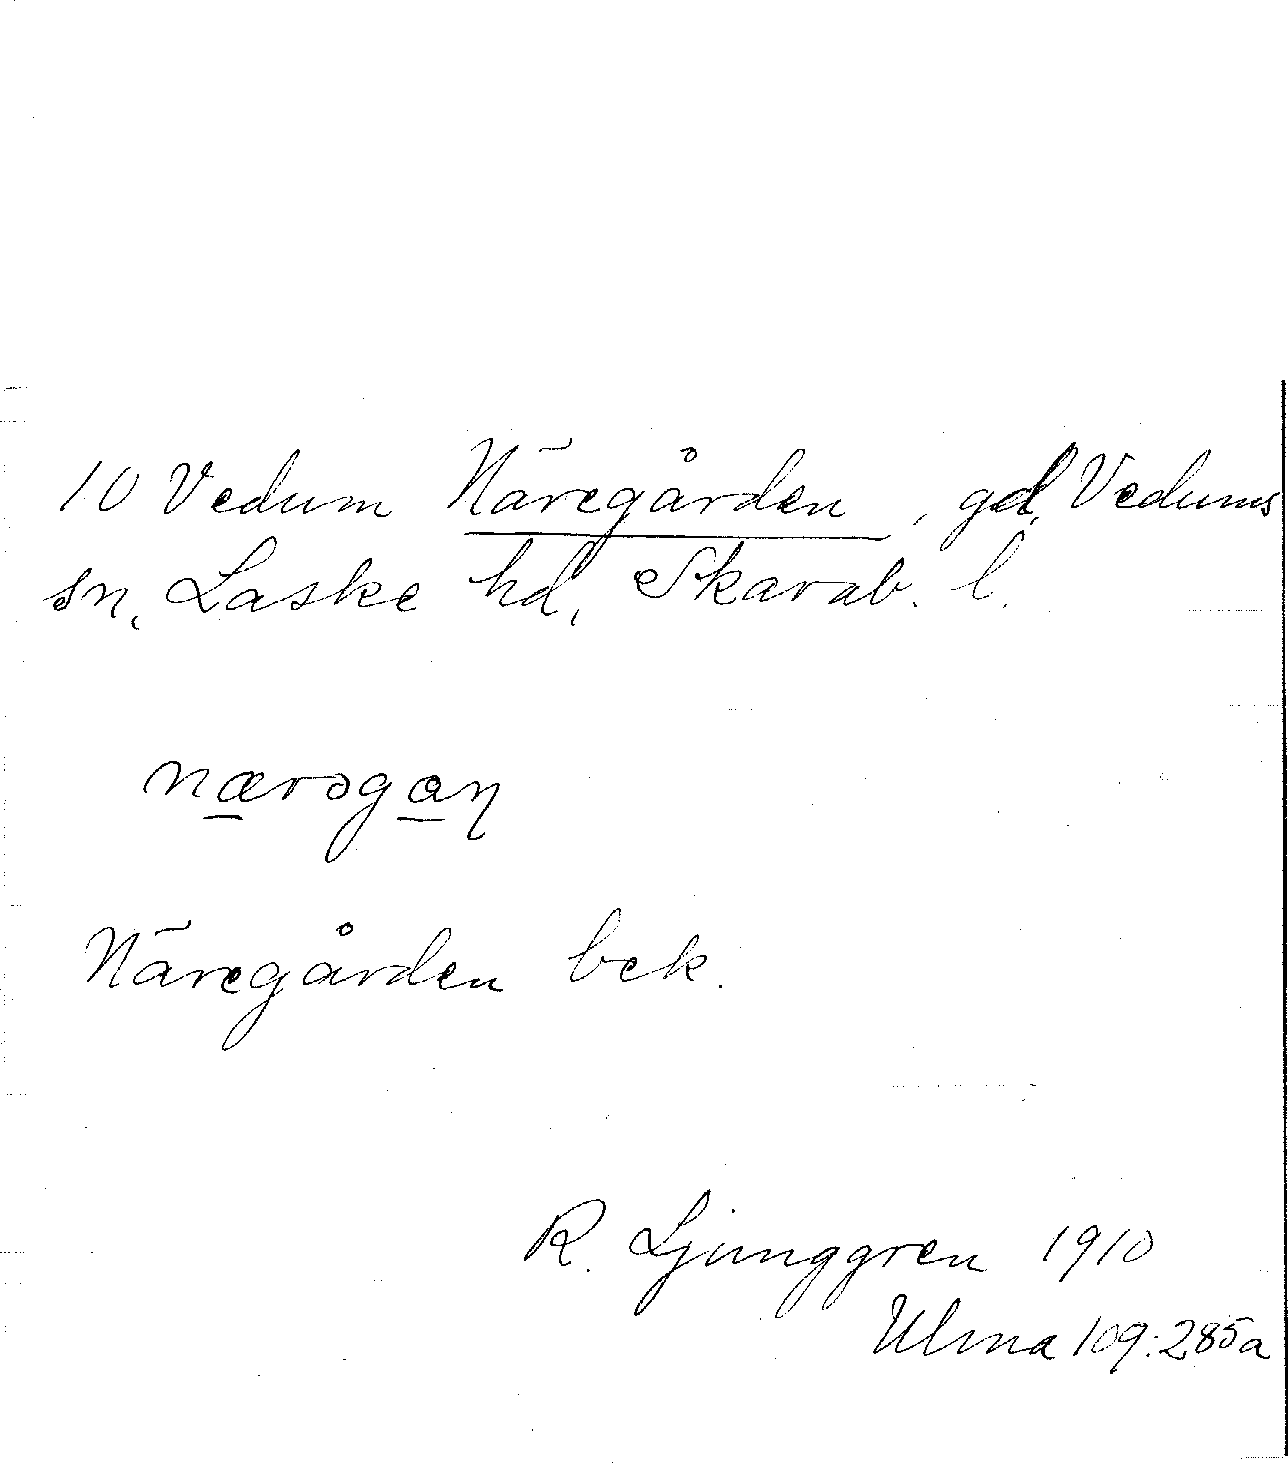 10 Vedum Näregården, gd, Vedums
sn, Laske hd, Skarab. l.
nærəgaɳ
Näregården bek.
R. Ljunggren 1910
Ulma 109:285a